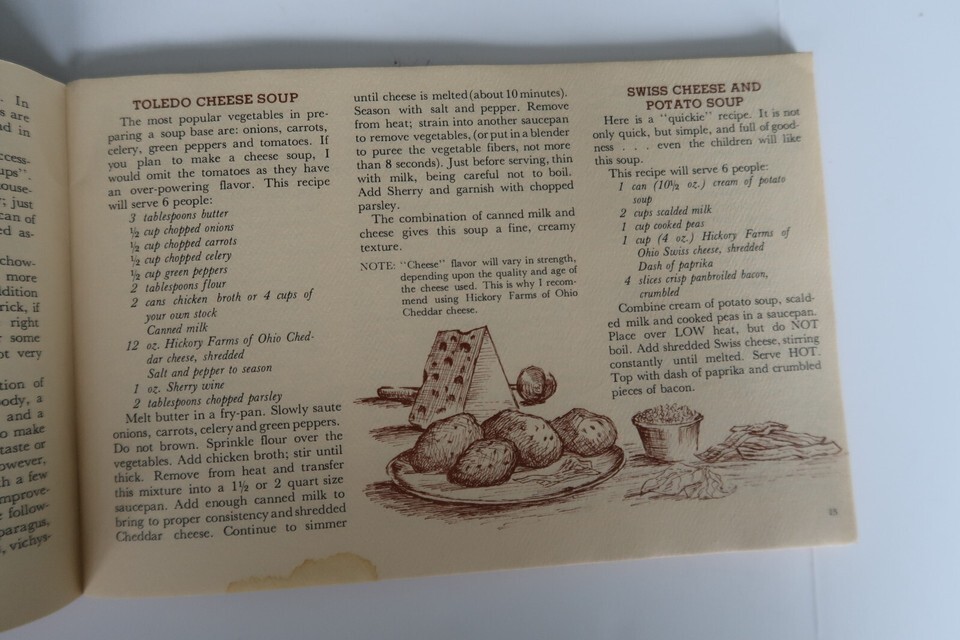 . In
s are
d in
ccess-
ups".
ouse-
; just
can of
ed as-
chow-
more
ddition
rick, if
right
r some
ot very
tion of
ody, a
and a
o make
taste or
owever,
h a few
mprove-
follow-
paragus,
, vichys-
TOLEDO CHEESE SOUP
The most popular vegetables in pre-
paring a soup base are: onions, carrots,
celery, green peppers and tomatoes. If
you plan to make a cheese soup, I
would omit the tomatoes as they have
an over-powering flavor. This recipe
will serve 6 people:
3 tablespoons butter
½ cup chopped onions
½ cup chopped carrots
½ cup chopped celery
½ cup green peppers
2 tablespoons flour
2 cans chicken broth or 4 cups of
your own stock
Canned milk
12 oz. Hickory Farms of Ohio Ched-
dar cheese, shredded
Salt and pepper to season
1 oz. Sherry wine
2 tablespoons chopped parsley
Melt butter in a fry-pan. Slowly saute
onions, carrots, celery and green peppers.
Do not brown. Sprinkle flour over the
vegetables. Add chicken broth; stir until
thick. Remove from heat and transfer
this mixture into a 1½ or 2 quart size
saucepan. Add enough canned milk to
bring to proper consistency and shredded
Cheddar cheese. Continue to simmer
until cheese is melted (about 10 minutes).
Season with salt and pepper. Remove
from heat; strain into another saucepan
to remove vegetables, (or put in a blender
to puree the vegetable fibers, not more
than 8 seconds). Just before serving, thin
with milk, being careful not to boil.
Add Sherry and garnish with chopped
parsley.
The combination of canned milk and
cheese gives this soup a fine, creamy
texture.
NOTE: "Cheese" flavor will vary in strength,
depending upon the quality and age of
the cheese used. This is why I recom-
mend using Hickory Farms of Ohio
Cheddar cheese.
SWISS CHEESE AND
POTATO SOUP
Here is a "quickie" recipe. It is not
only quick, but simple, and full of good-
ness . . . even the children will like
this soup.
This recipe will serve 6 people:
1 can (10½ oz.) cream of potato
soup
2 cups scalded milk
1 cup cooked peas
1 cup (4 oz.) Hickory Farms of
Ohio Swiss cheese, shredded
Dash of paprika
4 slices crisp panbroiled bacon,
crumbled
Combine cream of potato soup, scald-
ed milk and cooked peas in a saucepan.
Place over LOW heat, but do NOT
boil. Add shredded Swiss cheese, stirring
constantly until melted. Serve HOT.
Top with dash of paprika and crumbled
pieces of bacon.